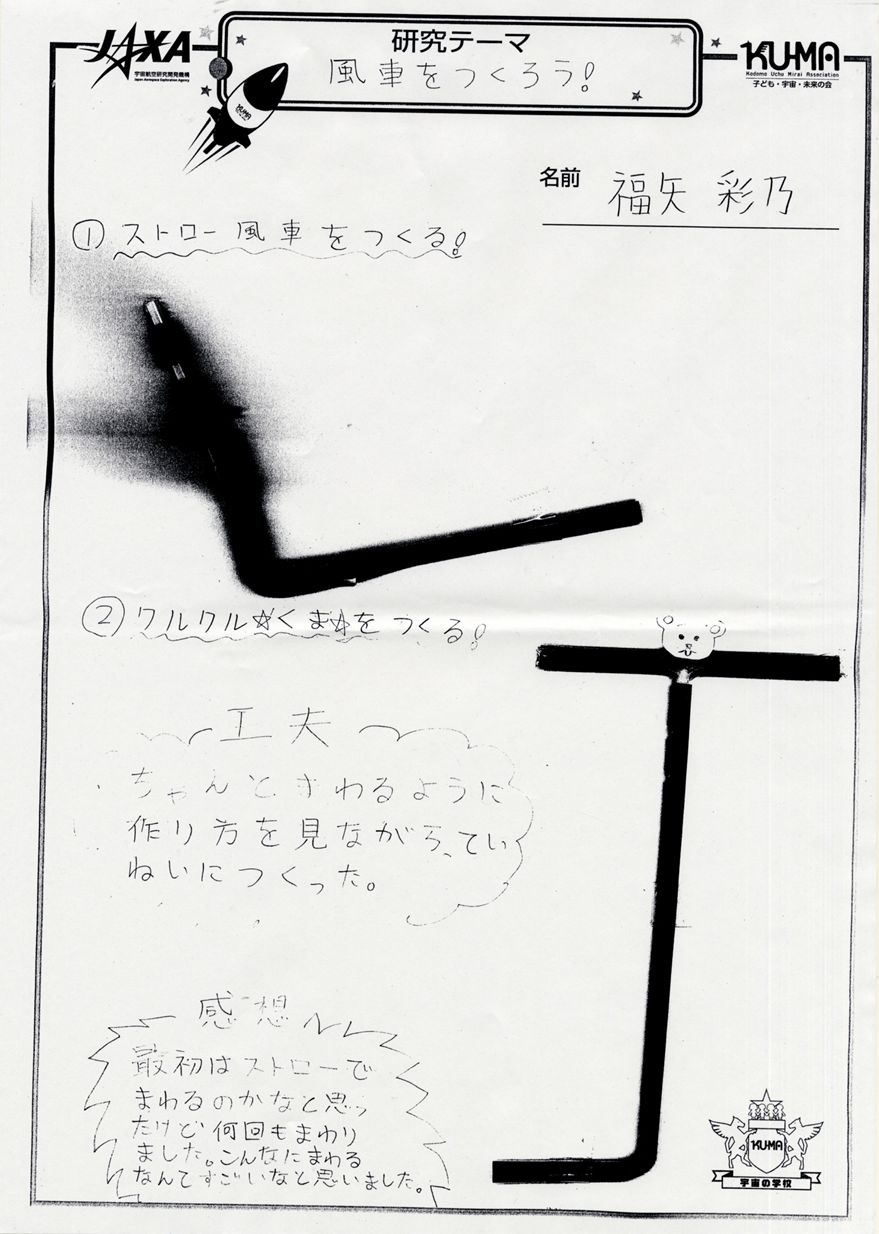 JAXA
宇宙航空研究開発機構
Japan Aerospace Exploration Agency
研究テーマ
風車をつくろう!
KU-MA
Kodomo Uchu Mirai Association
子ども・宇宙・未来の会
KU-MA
名前 福矢 彩乃
① ストロー風車をつくる!
② クルクル☆くま☆をつくる!
工夫
ちゃんとまわるように
作り方を見ながら、てい
ねいにつくった。
感想
最初はストローで
まわるのかなと思っ
たけど何回もまわり
ました。こんなにまわる
なんてすごいなと思いました。
KU-MA
宇宙の学校